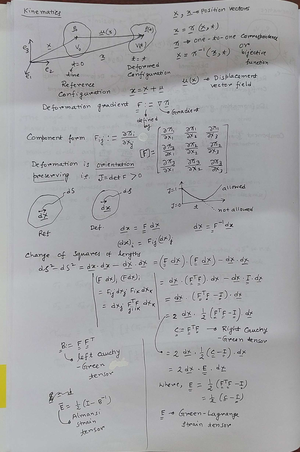 Kinematics
x, x → Position vectors
x = π(x, t)
π → one-to-one correspondence
or
bijective
function
x = π⁻¹(x, t)
u(x) → Displacement
vector field
e₃
e₂
e₁
x
u(x)
V₀
t=0
time
Reference
Configuration
t = t
Deformed
Configuration
x = x + u
Deformation gradient F := ∇π
defined by
Gradient
Component form Fij := ∂πi/∂xj
[F] = [∂π1/∂x1 ∂π1/∂x2 ∂π1/∂x3
∂π2/∂x1 ∂π2/∂x2 ∂π2/∂x3
∂π3/∂x1 ∂π3/∂x2 ∂π3/∂x3]
Deformation is orientation
preserving i.e. J = det F > 0
J=1
J=0
t
allowed
not allowed
dS
dx
Ref
ds
dx
Def
dx = F dx
dx = F⁻¹dx
(dx)i = Fij(dx)j
Change of squares of lengths
ds² - dS² = dx·dx - dx·dx = (F dx)·(F dx) - dx·dx
(F dx)i (F dx)i
= Fij dxj Fik dxk
= dxj FᵀjiFik dxk
= dx·(FᵀF)·dx - dx·I·dx
= dx·(FᵀF - I)·dx
= 2 dx·½(FᵀF - I)·dx
C = FᵀF → Right Cauchy
-Green tensor
= 2 dx·½(C - I)·dx
= 2 dx·E·dx
where, E = ½(FᵀF - I)
= ½(C - I)
E → Green-Lagrange
Strain tensor
B = F Fᵀ
left Cauchy
-Green
tensor
E = ½(I - B⁻¹)
Almansi
strain
tensor